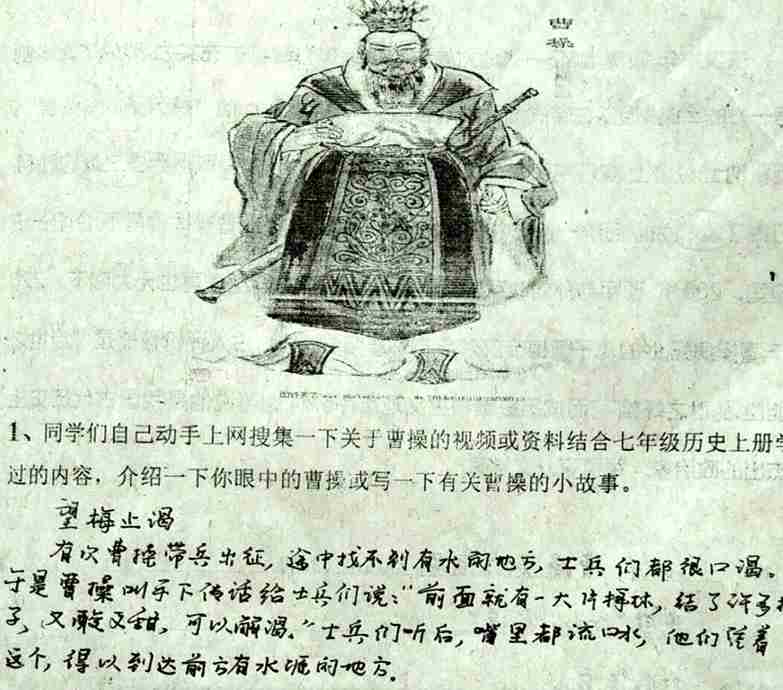 曹
操
1、同学们自己动手上网搜集一下关于曹操的视频或资料结合七年级历史上册学
过的内容，介绍一下你眼中的曹操或写一下有关曹操的小故事。
望梅止渴
有次曹操带兵出征，途中找不到有水的地方，士兵们都很口渴。
于是曹操叫手下传话给士兵们说：“前面就有一大片梅林，结了许多梅
子，又酸又甜，可以解渴。”士兵们听后，嘴里都流口水，他们凭着
这个，得以到达前方有水塬的地方。